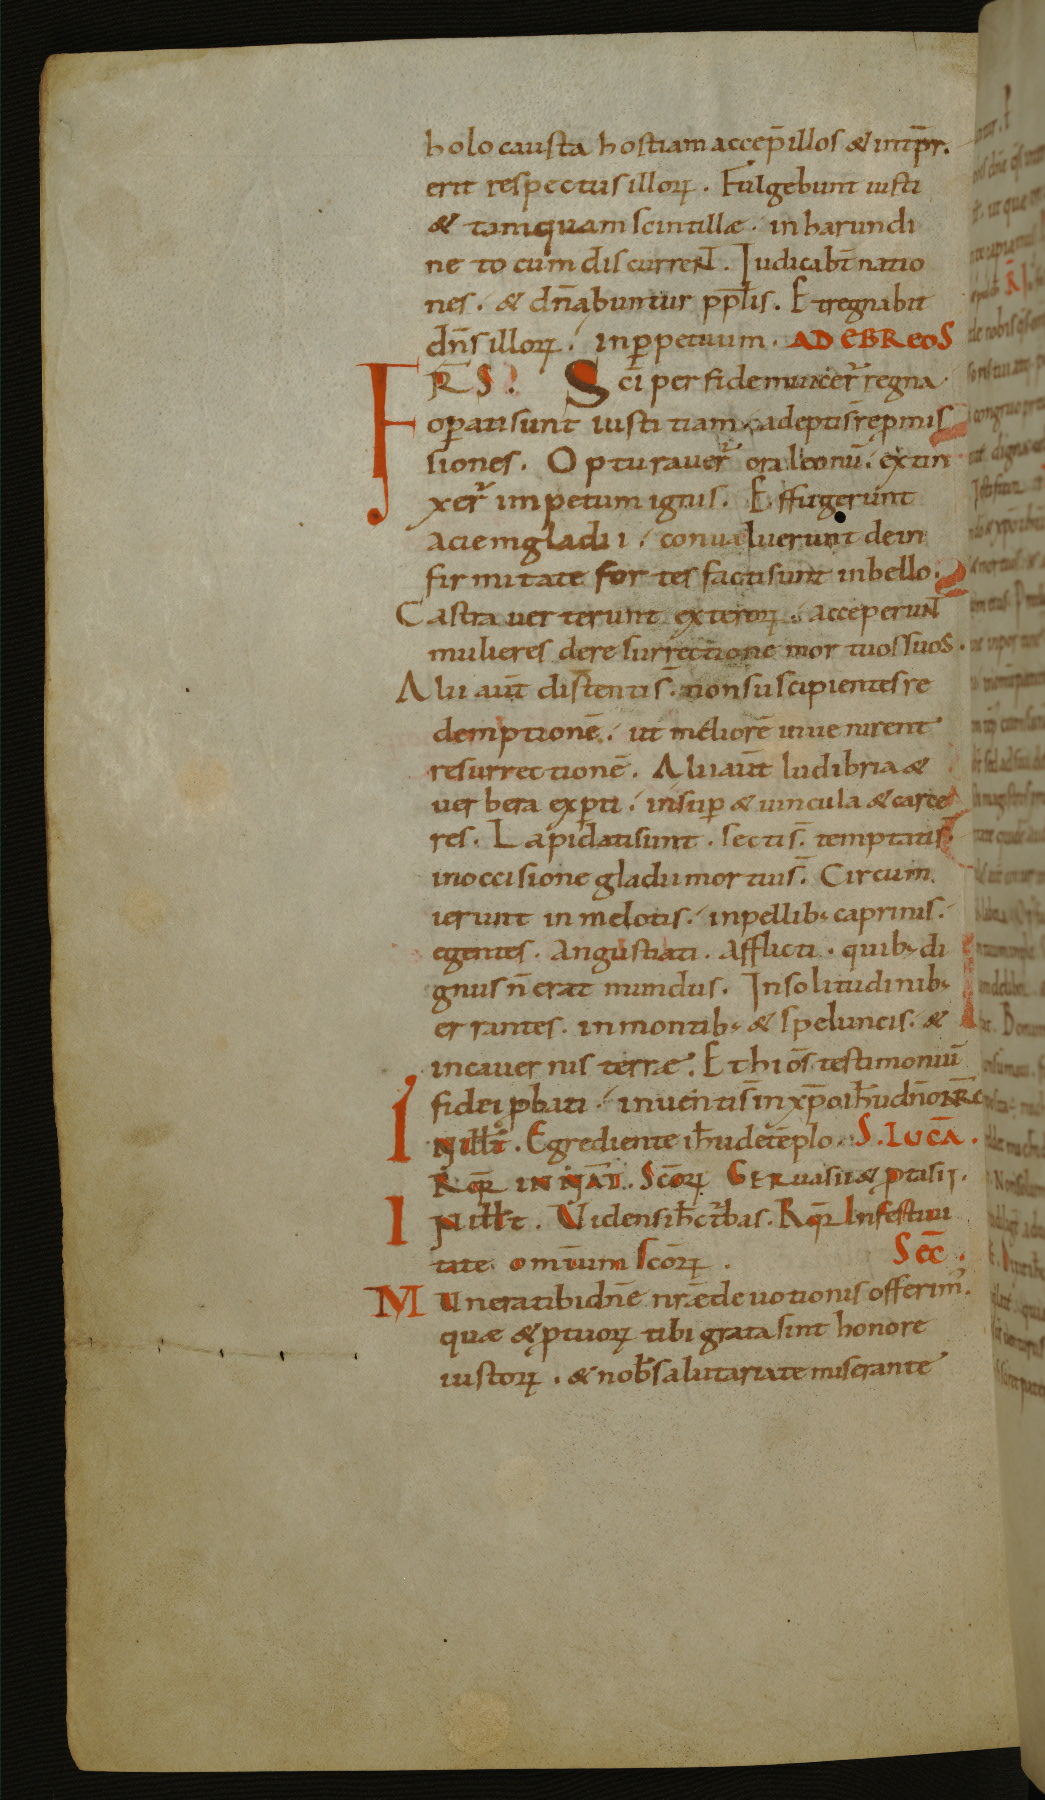 holocausta hostiam accep̄ illos & in tp̄r.
erit respectus illorꝝ. Fulgebunt iusti
& tamquam scintillæ. in harundi
neto cum discurrent. Iudicabt̄ natio
nes. & dn̄abuntur pp̄lis. Et regnabit
dn̄s illorꝝ. in ꝑpetuum. AD EBREOS
FR̄S. Sc̄i per fidem uicer̄ regna
oꝑati sunt iustitiam. adepti s̄ repmis
siones. Opturauer̄ ora leonū. extin
xer̄ impetum ignis. Effugerunt
aciem gladii. conualuerunt de in
firmitate fortes facti sunt in bello.
Castra uerterunt exterorꝝ. acceperunt
mulieres de resurrectione mortuos suos.
Alii aūt distenti s̄. non suscipientes re
demptionē. ut meliorē inuenirent
resurrectionē. Alii aūt ludibria &
uerbera exꝑti. insuꝑ & uincula & carce
res. Lapidati sunt. secti s̄. temptati s̄.
in occisione gladii mortui s̄. Circum
ierunt in melotis. in pellib; caprinis.
egentes. Angustiati. Afflicti. quib; di
gnus n̄ erat mundus. In solitudinib;
errantes. in montib; & speluncis. &
in cauernis terræ. Et hi om̄s testimoniū
fidei ꝓbati. inuenti s̄ in xp̄o ih̄u dn̄o nr̄o
IN illo t̄. Egrediente ih̄u de tēplo. S. LUCĀ.
Rq̄r IN NAT̄. Sc̄orꝝ Geruasii & ꝓtasii.
IN illo t̄. Uidens ih̄c t̄bas. Rq̄r In festiui
tate omnium sc̄orꝝ. SEC̄.
Munera tibi dn̄e nr̄e deuotionis offerim;
quæ & ꝓ tuorꝝ tibi grata sint honore
iustorꝝ. & nob̄ salutaria te miserante